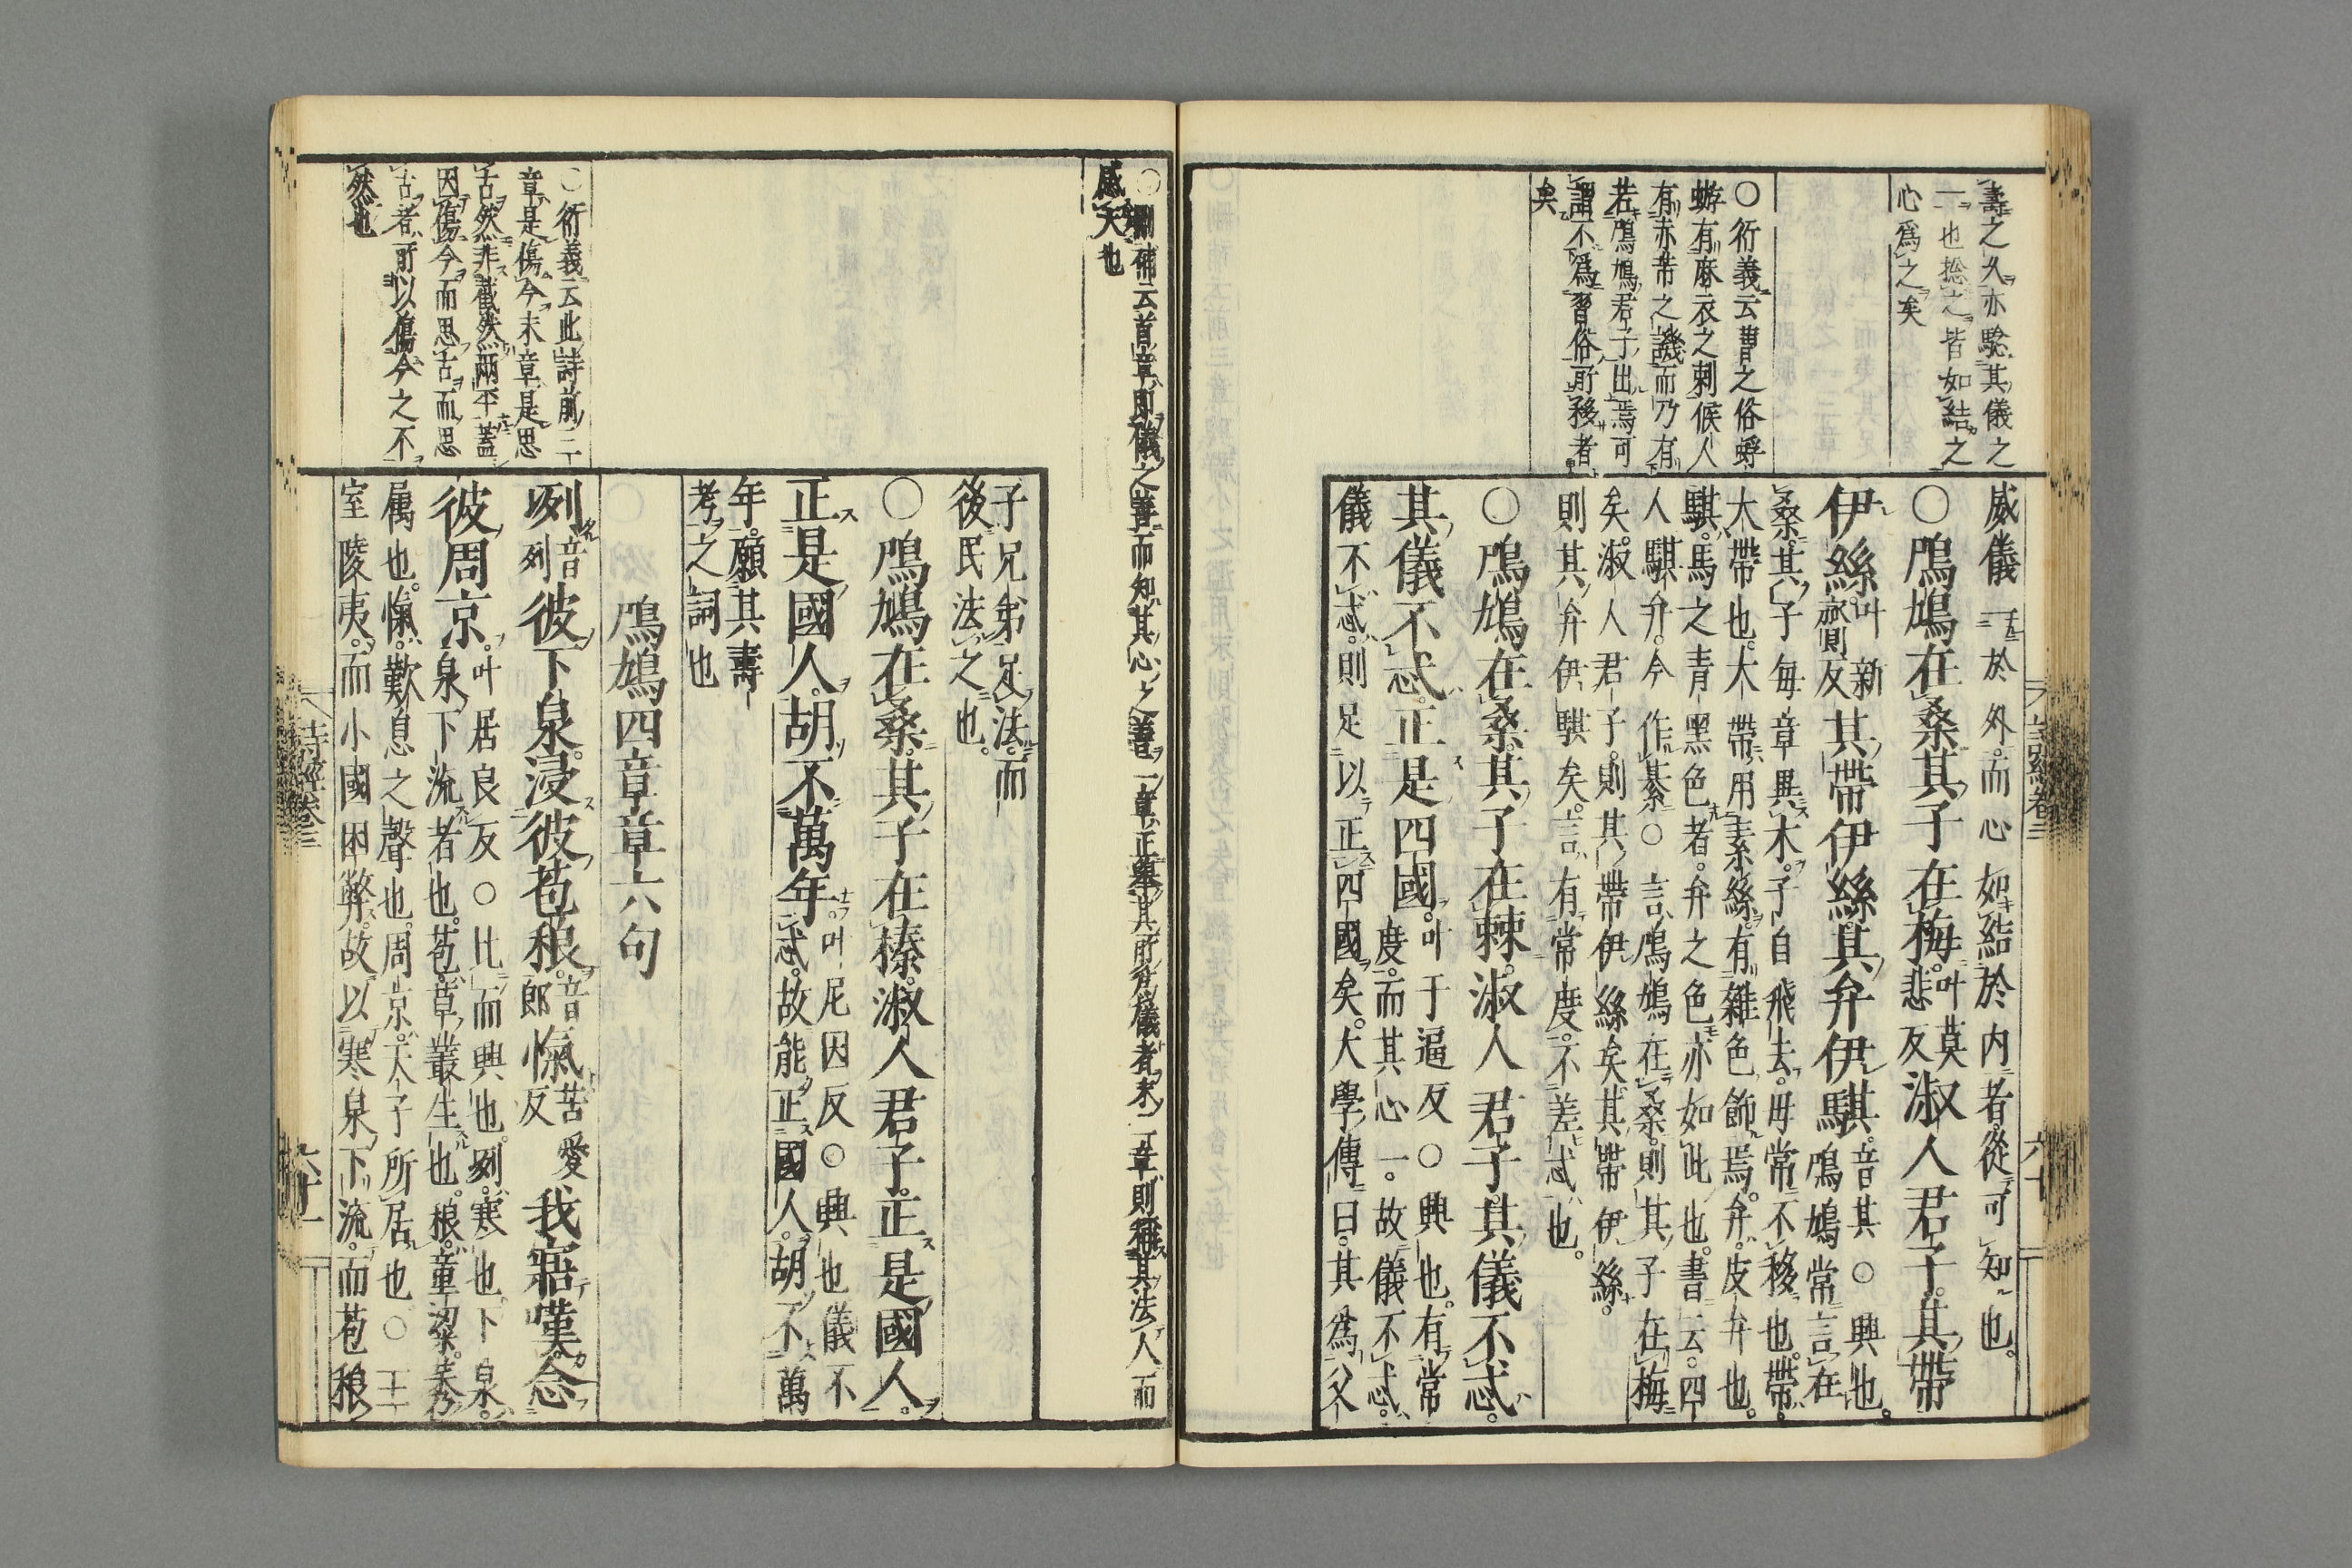 壽之久亦驗其儀之
一也捴之皆如結之
心爲之矣
○衍義云曹之俗蜉
蝣有麻衣之刺候人
有赤芾之譏而乃有
若鳲鳩君子出焉可
謂不爲習俗所移者
矣
威儀一於外而心如結於内者從可知也
○鳲鳩在桑其子在梅叶莫悲反淑人君子其帶
伊絲叶新齎反其帶伊絲其弁伊騏音其○興也鳲鳩常言在
桑其子每章異木子自飛去母常不移也帶
大帶也大帶用素絲有雜色飾焉弁皮弁也
騏馬之青黑色者弁之色亦如此也書云四
人騏弁今作綦○言鳲鳩在桑則其子在梅
矣淑人君子則其帶伊絲矣其帶伊絲
則其弁伊騏矣言有常度不差忒也
○鳲鳩在桑其子在棘淑人君子其儀不忒
其儀不忒正是四國叶于逼反○興也有常度而其心一故儀不忒
儀不忒則足以正四國矣大學傳曰其爲父
詩經卷三
六十
○刪補云首章即儀之善而知其心之善二章正舉其所爲儀者末二章則稱其法人而
感天也
○衍義云此詩前三
章是傷今末章是思
古然非截然兩平蓋
因傷今而思古而思
古者所以傷今之不
然也
子兄弟足法而
後民法之也
○鳲鳩在桑其子在榛淑人君子正是國人
正是國人胡不萬年叶尼因反○興也儀不忒故能正國人胡不萬
年願其壽
考之詞也
鳲鳩四章章六句
冽音列彼下泉浸彼苞稂音郎愾苦愛反我寤嘆念
彼周京叶居良反○比而興也冽寒也下泉泉下流者也苞草叢生也稂童粱莠
属也愾歎息之聲也周京天子所居也○王
室陵夷而小國困弊故以寒泉下流而苞稂
詩經卷三
六十一